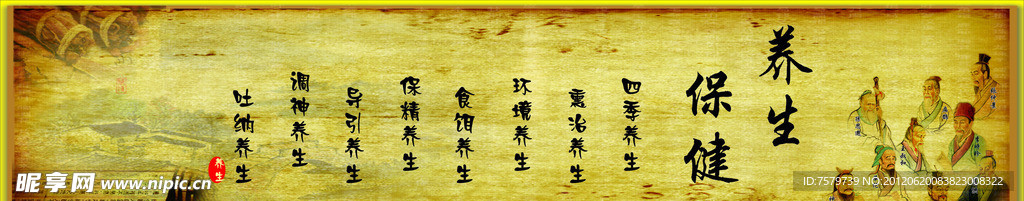 养生
保健
四季养生
熏治养生
环境养生
食饵养生
保精养生
导引养生
调神养生
吐纳养生
养生
昵享网 www.nipic.cn
ID:7579739 NO:20120620083823008322